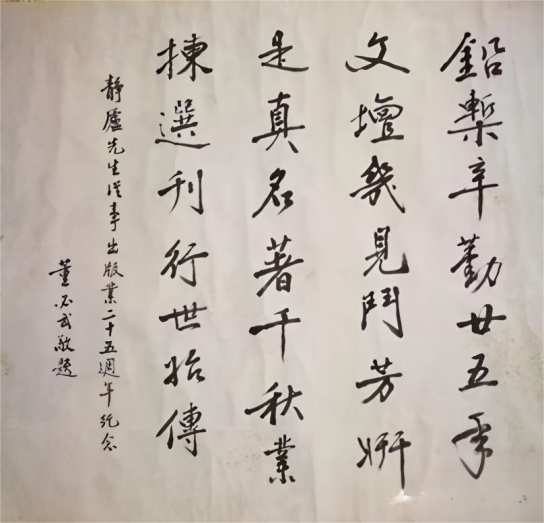 鉛槧辛勤廿五年
文壇幾見鬥芳妍
是真名著千秋業
揀選刊行世始傳
靜廬先生從事出版業二十五週年紀念
董必武敬題